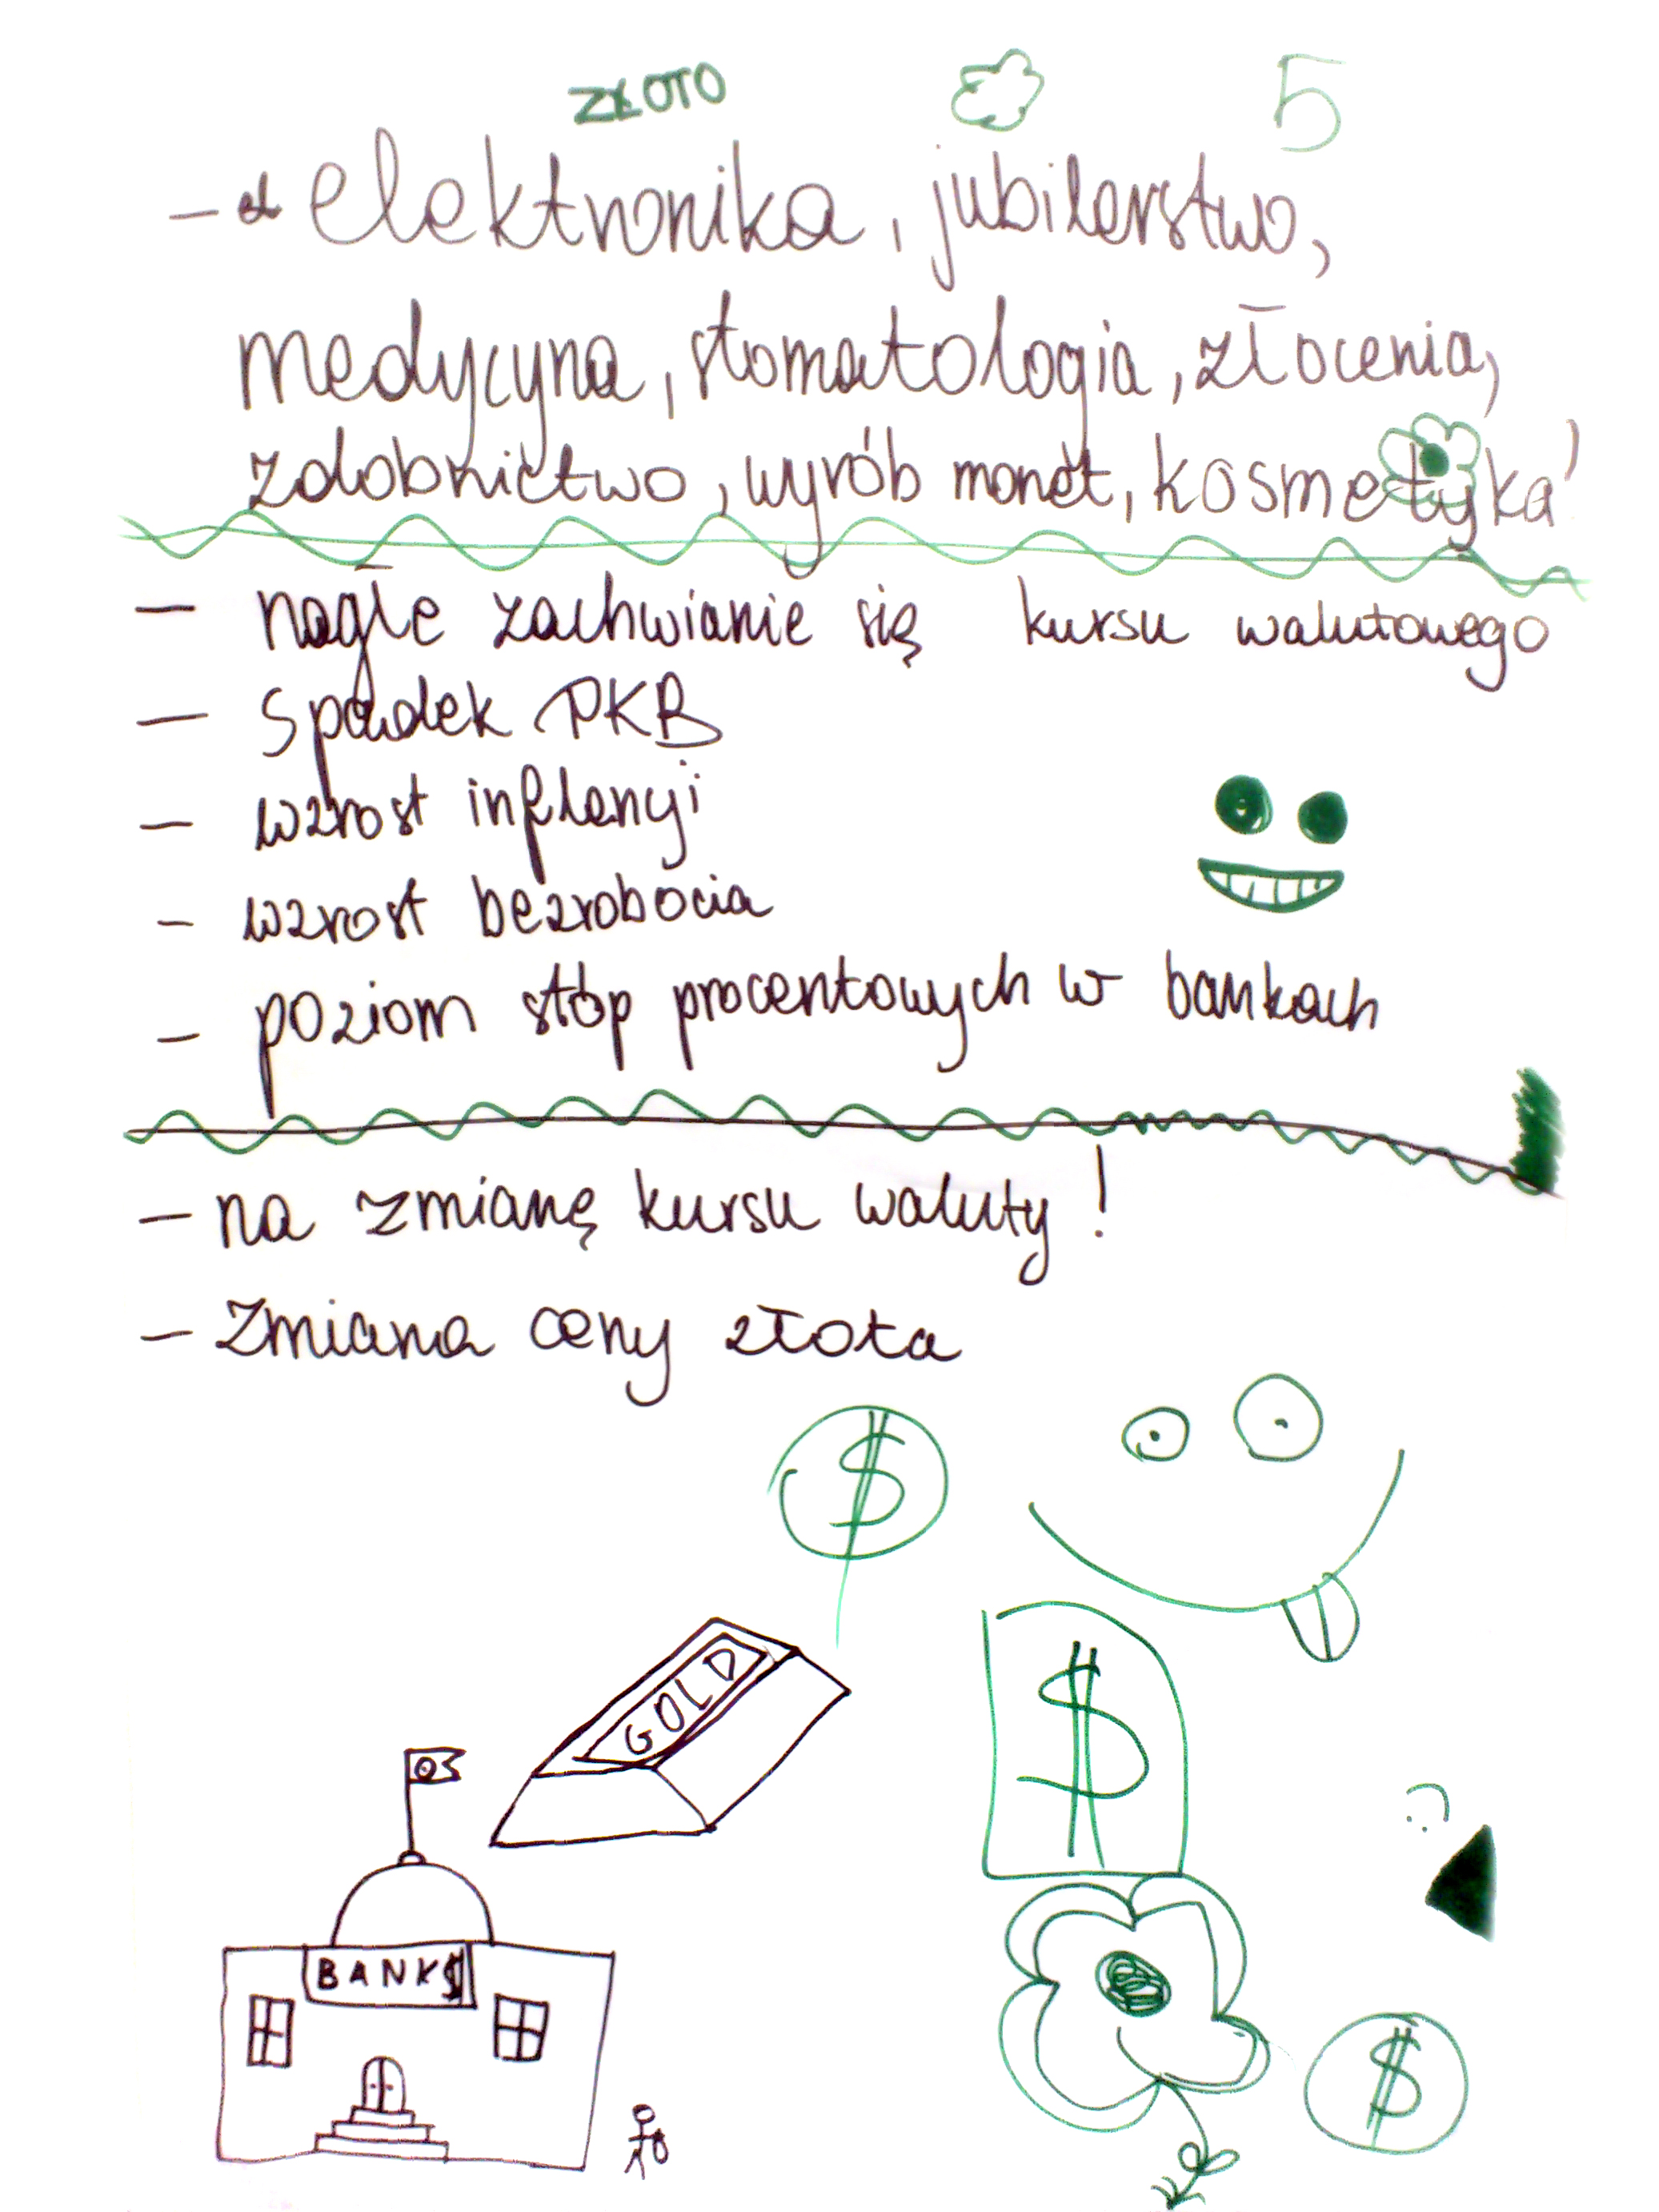 ZŁOTO 5
- elektronika, jubilerstwo,
medycyna, stomatologia, złocenia,
zdobnictwo, wyrób monet, kosmetyka!
- nagłe zachwianie się kursu walutowego
- spadek PKB
- wzrost inflancji
- wzrost bezrobocia
- poziom stóp procentowych w bankach
- na zmianę kursu waluty!
- Zmiana ceny złota
$
GOLD
$
BANK$
$